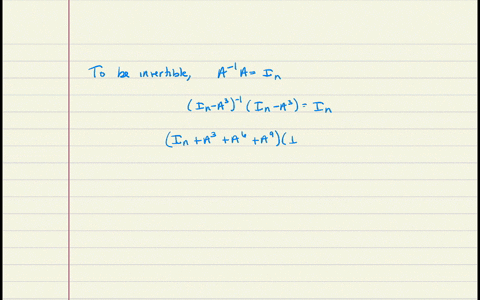 To be invertible, A⁻¹A = Iₙ
(Iₙ-A³)⁻¹ (Iₙ-A³) = Iₙ
(Iₙ + A³ + A⁶ + A⁹)(I